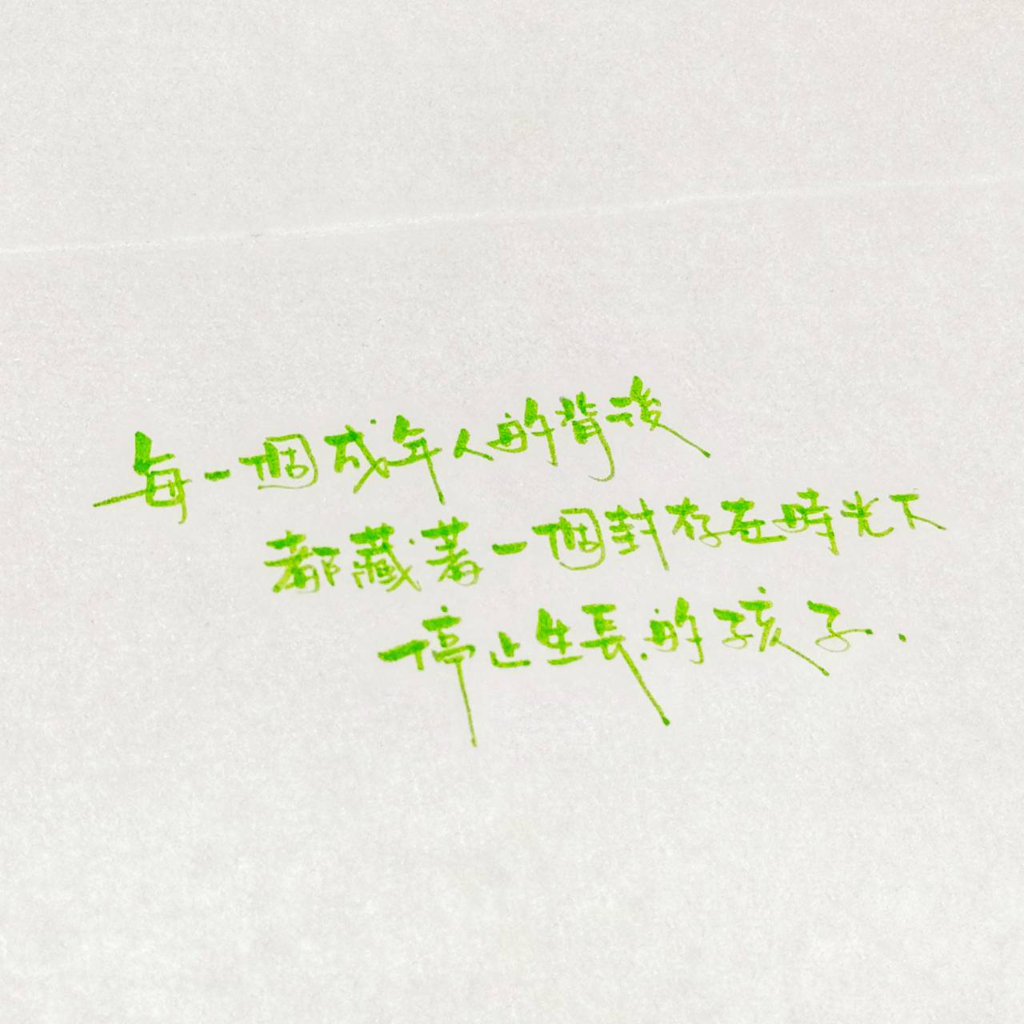 每一個成年人的背後
都藏著一個封存在時光下
停止生長的孩子.